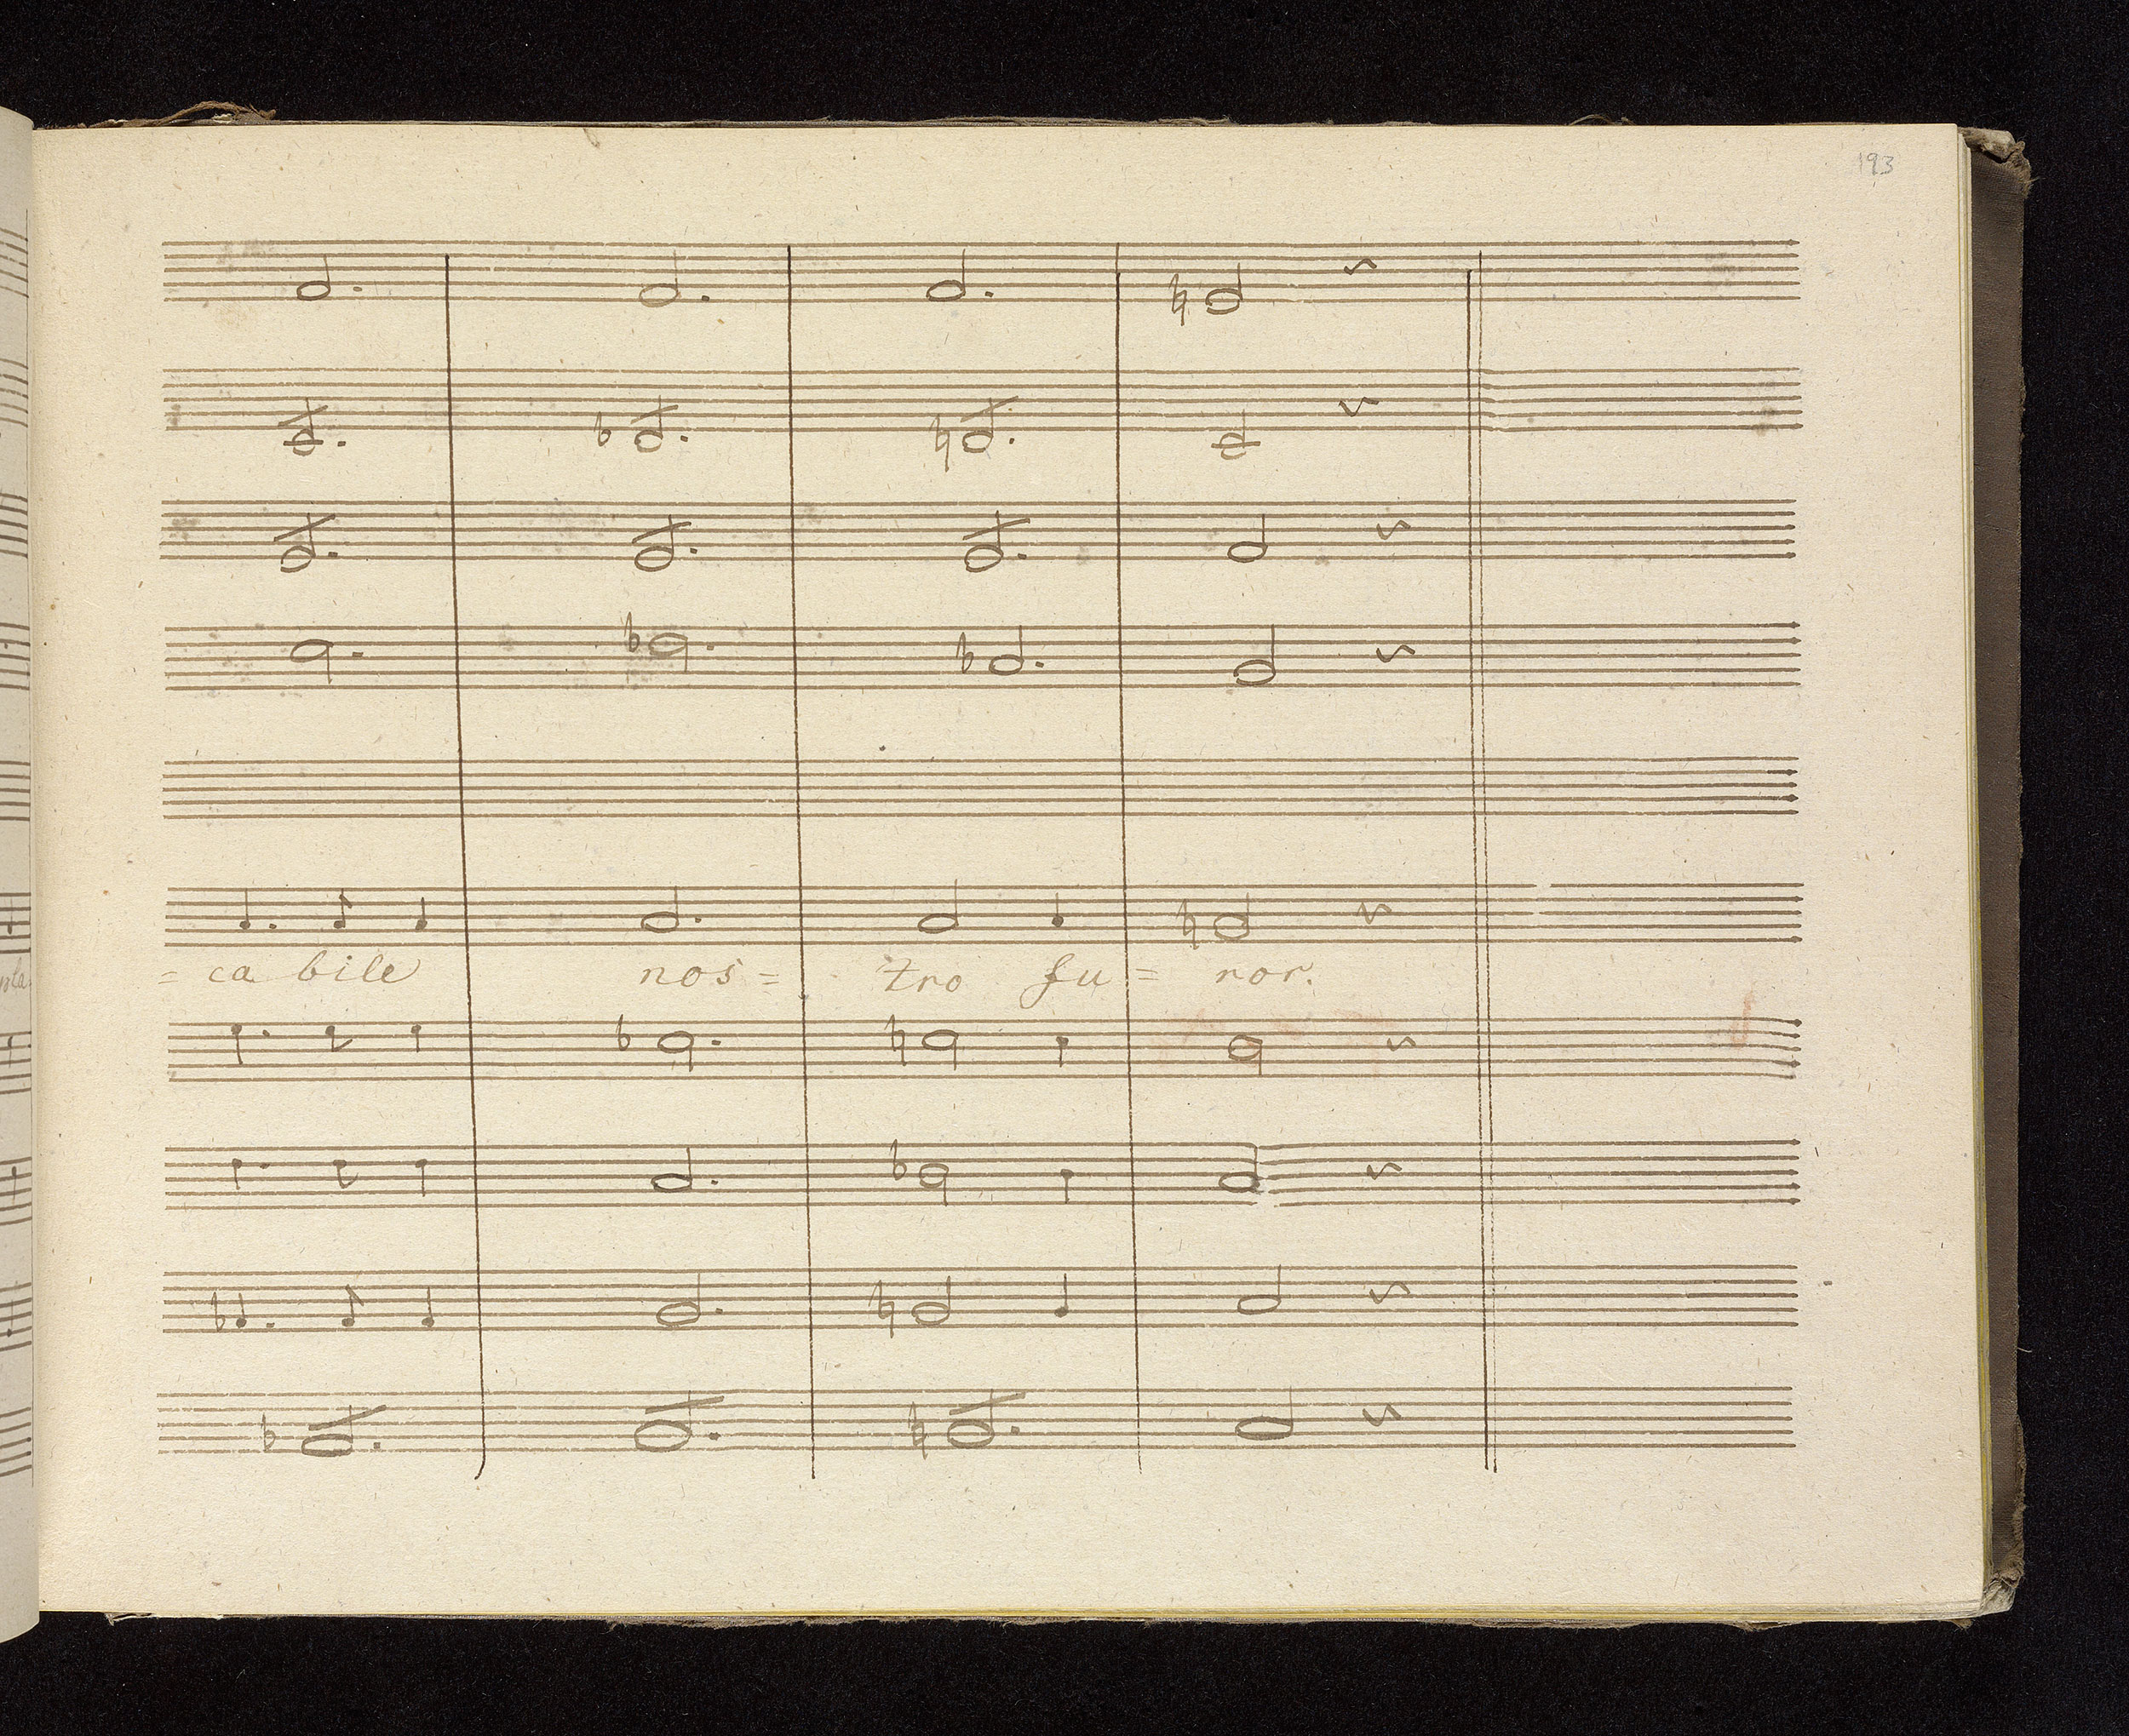 193
= ca bile nos = tro fu = ror.
pla=